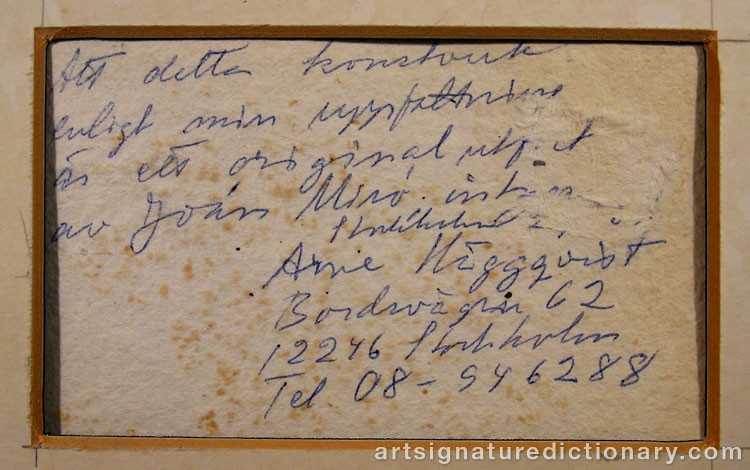 Att detta konstverk
enligt min uppfattning
är ett original utfört
av Joán Miró
Stockholm
Arne Häggqvist
12246 Stockholm
Tel 08-946288
artsignaturedictionary.com